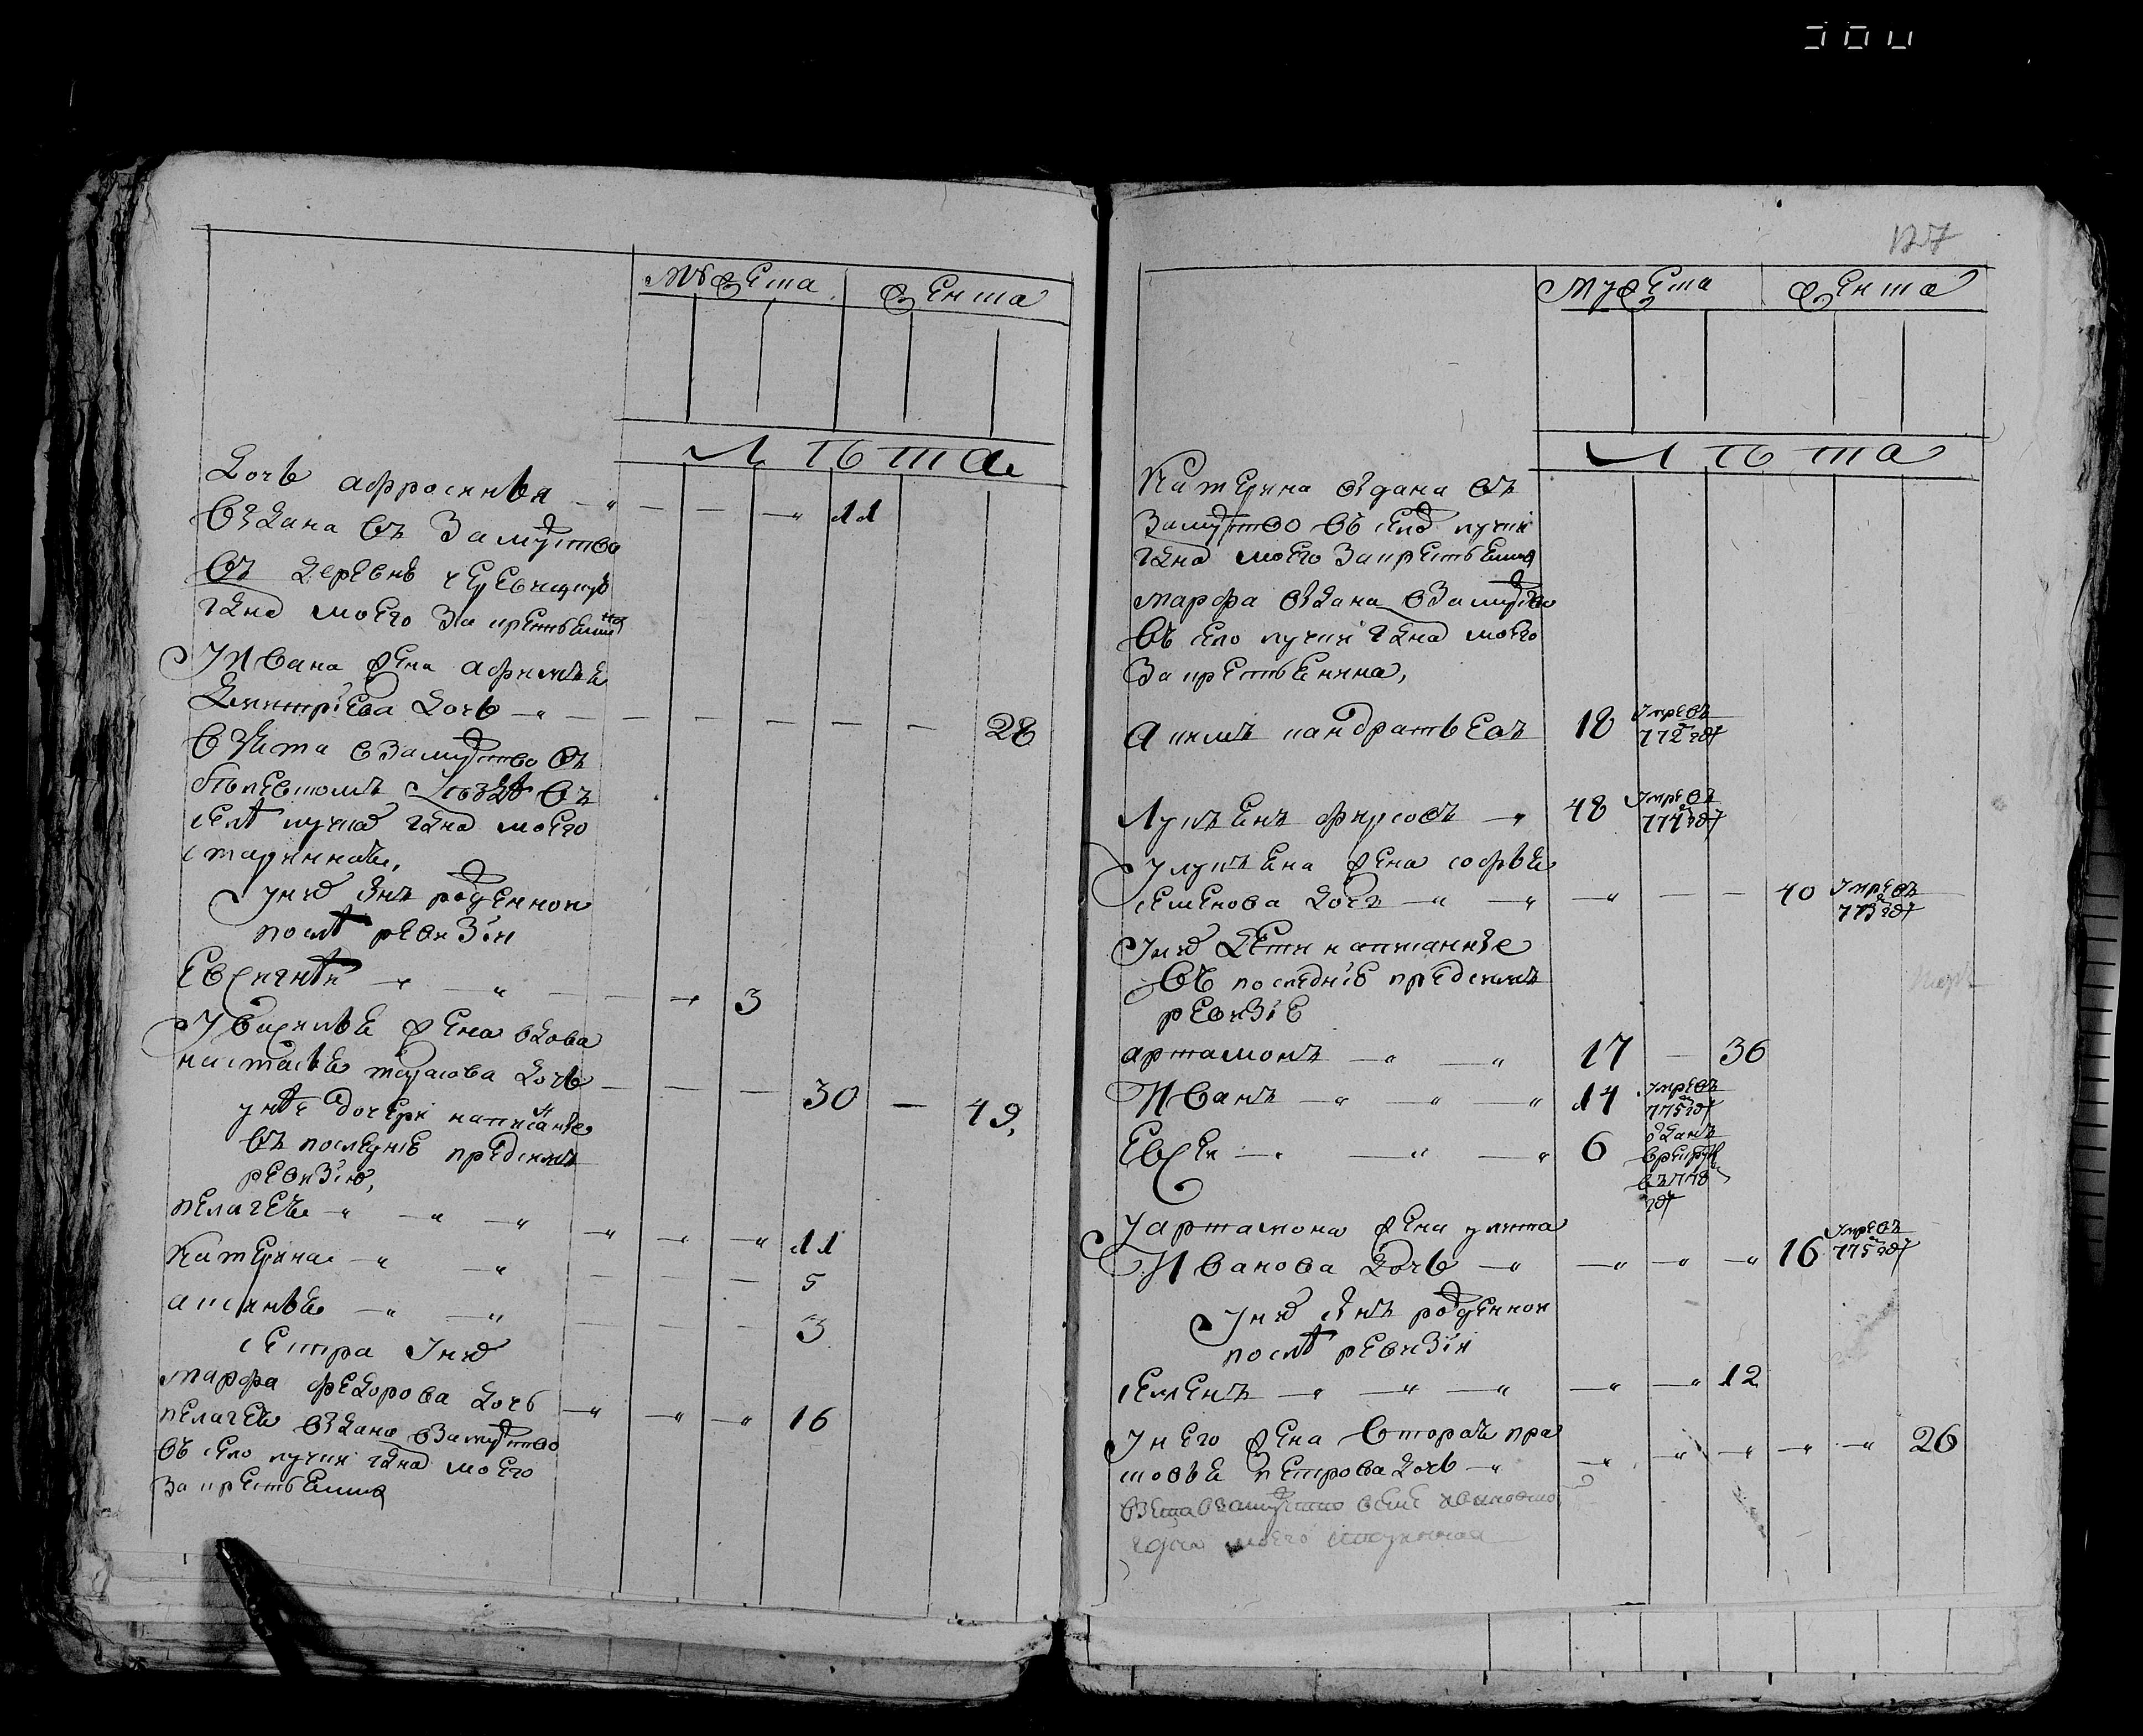 127
мужеска женска
лѣта
Дочь афросинья 11
выдана въ замужство
въ деревню
гдна моего за крестьенина
У Ивана жена афимья
Дмитриева дочь 28
взята взамужство въ
уѣзде въ
селѣ лучкѣ гдна моего
старинная,
У нихъ сынъ рожденной
послѣ ревизiи
Евсигней 3
У василья жена вдова
настасья тарасова дочь 30 49,
у нее дочери написанные
въ последнею пред симъ
ревизiю,
пелагея 11
катерина 5
аксинья 3
сестра у нихъ
марфа федорова дочь 16
пелагея выдана взамужство
въ село лучки гдна моего
за крестьенина
мужеска женска
лѣта
Катерина выдана въ
замужство въ село лучки
гдна моего за крестьенина
марфа выдана взамужство
въ село лучки гдна моего
за крестьенина,
акимъ кандратьевъ 18 умре въ
772 году
Лукъенъ фирсовъ 48 умре въ
774 году
У лукъена жена софья
семенова дочь 40 умре въ
773 году
У нихъ дети написанные
въ последнiю пред симъ
ревизiю
артамонъ 17 36
Иванъ 14 умре въ
775 году
Евсей 6 отданъ
в рекруты
въ
году
У артамона жена улита
Иванова дочь 16 умре въ
775 году
У нихъ сынъ рожденной
послѣ ревизiи
семенъ 12
У него жена вторая пра
сковья петрова дочь 26
взята взамужство в селе
гдна моего старинная